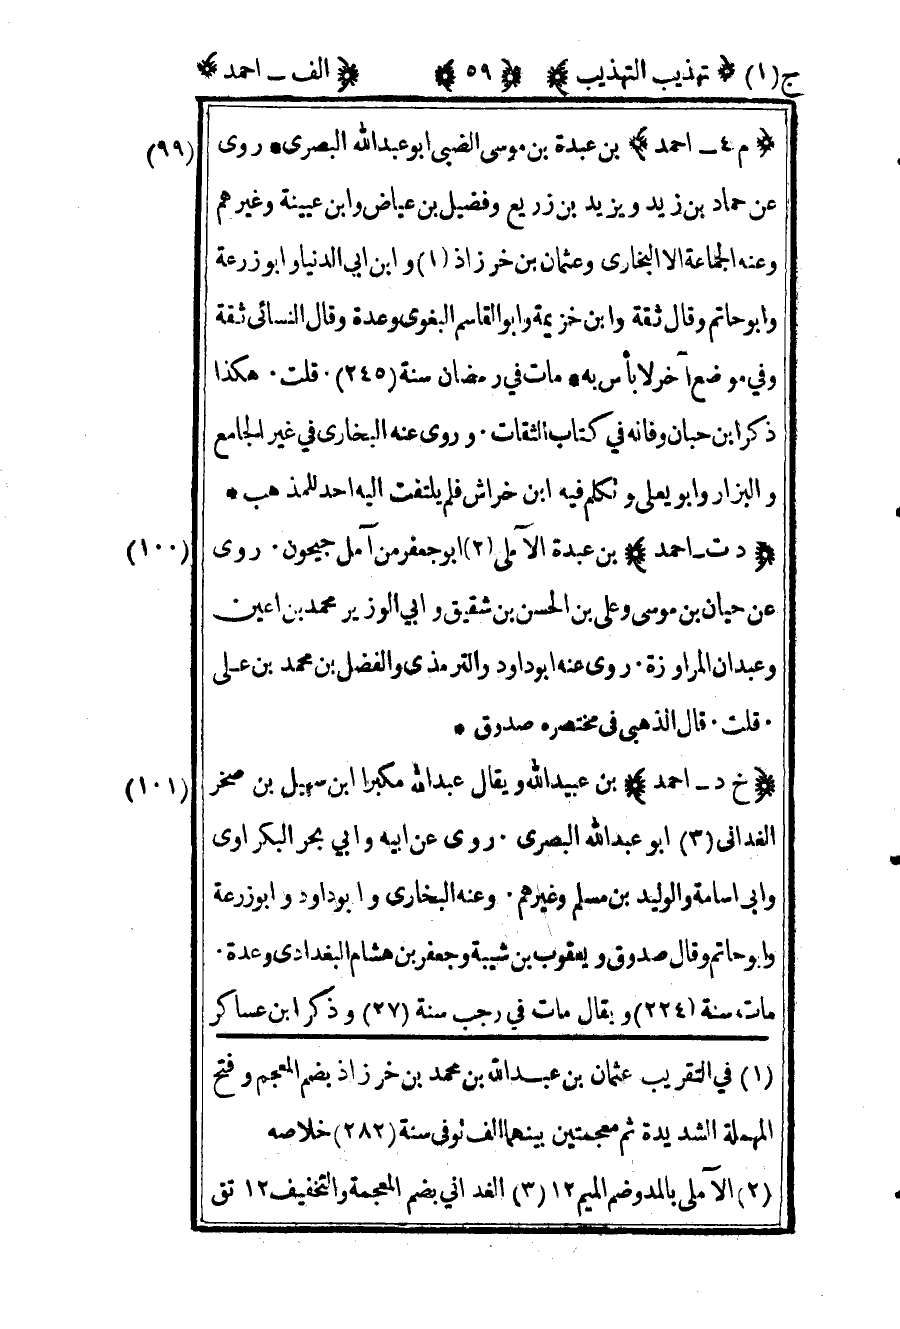 ج(١) ﴿ تهذيب التهذيب ﴾ ﴿ ٥٩ ﴾ ﴿ الف ــ احمد ﴾
﴿ م ٤ ــ احمد ﴾ بن عبدة بن موسى الضبي ابو عبدالله البصرى * روى (٩٩)
عن حماد بن زيد ويزيد بن زريع وفضيل بن عياض وابن عيينة وغيرهم
وعنه الجماعة الا البخارى وعثمان بن خرزاذ (١) وابن ابي الدنيا وابو زرعة
وابو حاتم وقال ثقة وابن خزيمة وابو القاسم البغوى وعدة وقال النسائى ثقة
وفي موضع آخر لا بأس به * مات في رمضان سنة (٢٤٥) ٠ قلت ٠ هكذا
ذكر ابن حبان وفاته في كتاب الثقات ٠ وروى عنه البخارى في غير الجامع
والبزار وابو يعلى وتكلم فيه ابن خراش فلم يلتفت اليه احد للمذهب *
﴿ د ت ــ احمد ﴾ بن عبدة الآملي (٢) ابو جعفر من آمل جيحون ٠ روى (١٠٠)
عن حيان بن موسى وعلى بن الحسن بن شقيق وابي الوزير محمد بن اعين
وعبدان المراوزة ٠ روى عنه ابو داود والترمذى والفضل بن محمد بن على
٠ قلت ٠ قال الذهبي فى مختصره صدوق *
﴿ خ د ــ احمد ﴾ بن عبيدالله ويقال عبدالله مكبرا ابن سهيل بن صخر (١٠١)
الغدانى (٣) ابو عبدالله البصرى ٠ روى عن ابيه وابي بحر البكراوى
وابى اسامة والوليد بن مسلم وغيرهم ٠ وعنه البخارى وابو داود وابو زرعة
وابو حاتم وقال صدوق ويعقوب بن شيبة وجعفر بن هشام البغدادى وعدة ٠
مات سنة (٢٢٤) ويقال مات في رجب سنة (٢٧) وذكر ابن عساكر
(١) في التقريب عثمان بن عبدالله بن محمد بن خرزاذ بضم المعجم وفتح
المهملة الشديدة ثم معجمتين بينهما الف توفى سنة (٢٨٢) خلاصه
(٢) الآملى بالمد وضم الميم ١٢ (٣) الغداني بضم المعجمة والتخفيف ١٢ تق